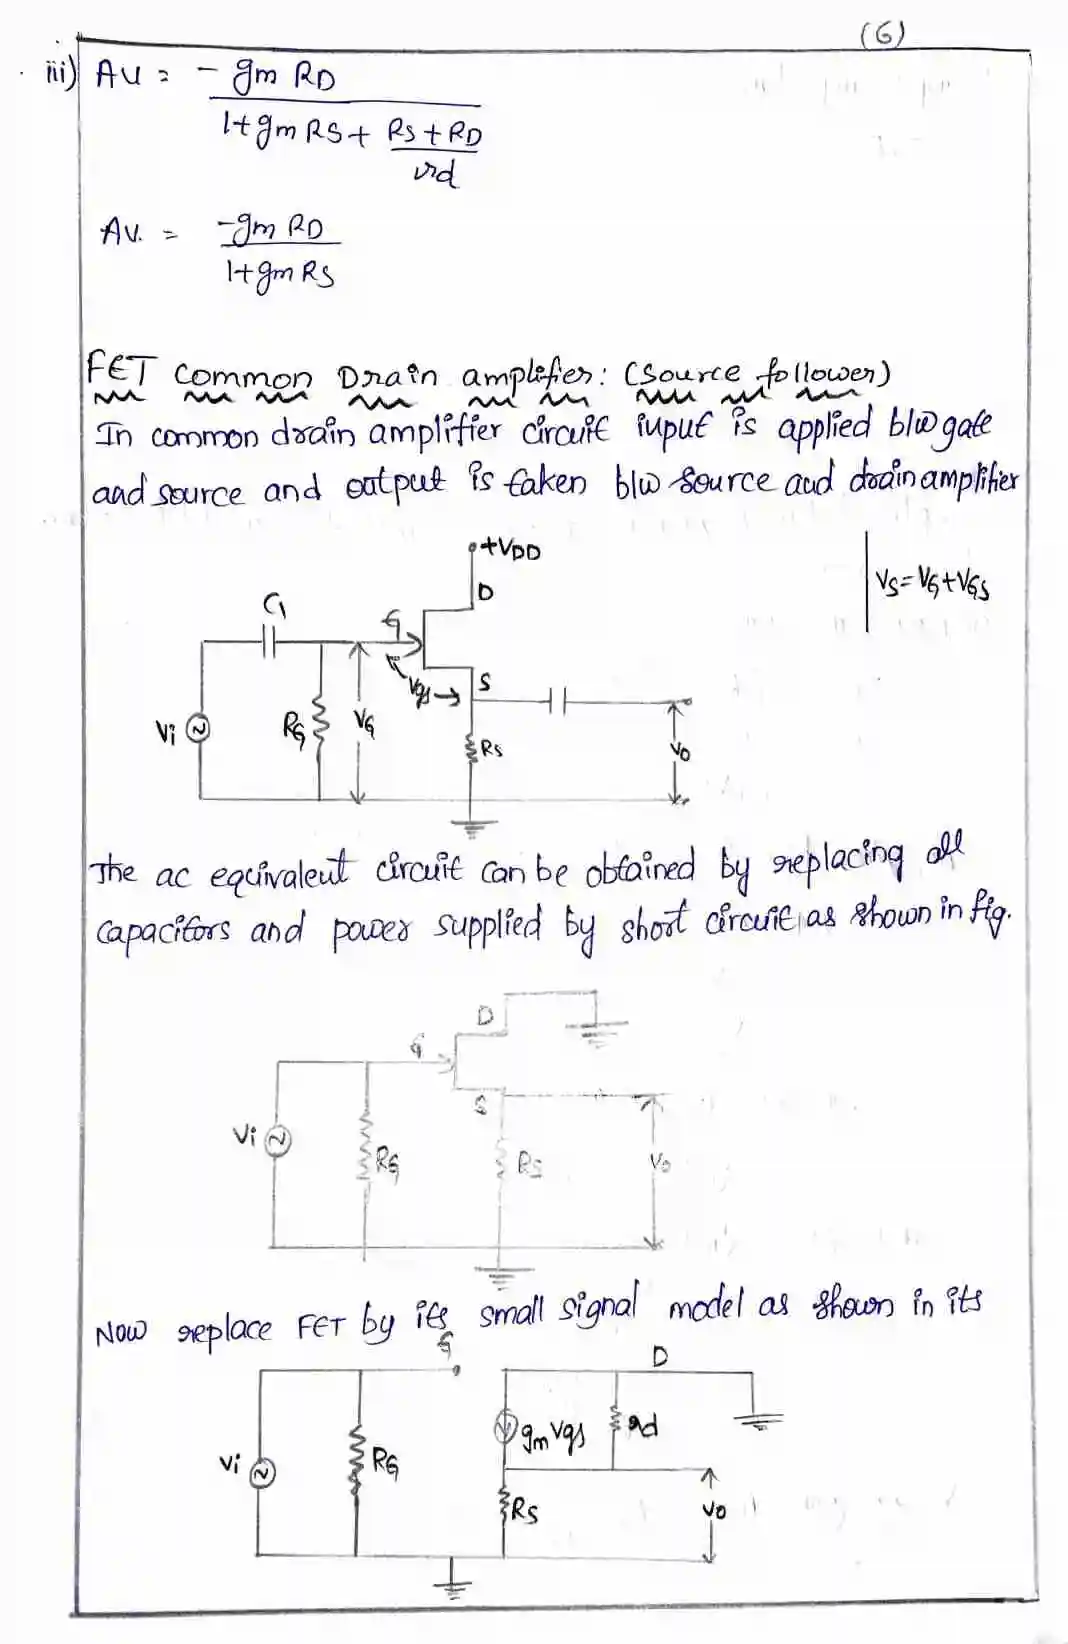 (6)
iii) AU = - gm RD
1+gm RS + RS + RD
rd
AV. = -gm RD
1+gm RS
FET common Drain amplifier: (Source follower)
In common drain amplifier circuit input is applied b/w gate
and source and output is taken b/w source and drain amplifier
+VDD
D
VS = VG + VGS
C1
G
Vgs
S
Vi
RG
VG
RS
Vo
The ac equivalent circuit can be obtained by replacing all
capacitors and power supplied by short circuit as shown in fig.
D
G
S
Vi
RG
RS
Vo
Now replace FET by its small signal model as shown in its
G
D
gm Vgs
rd
Vi
RG
RS
Vo